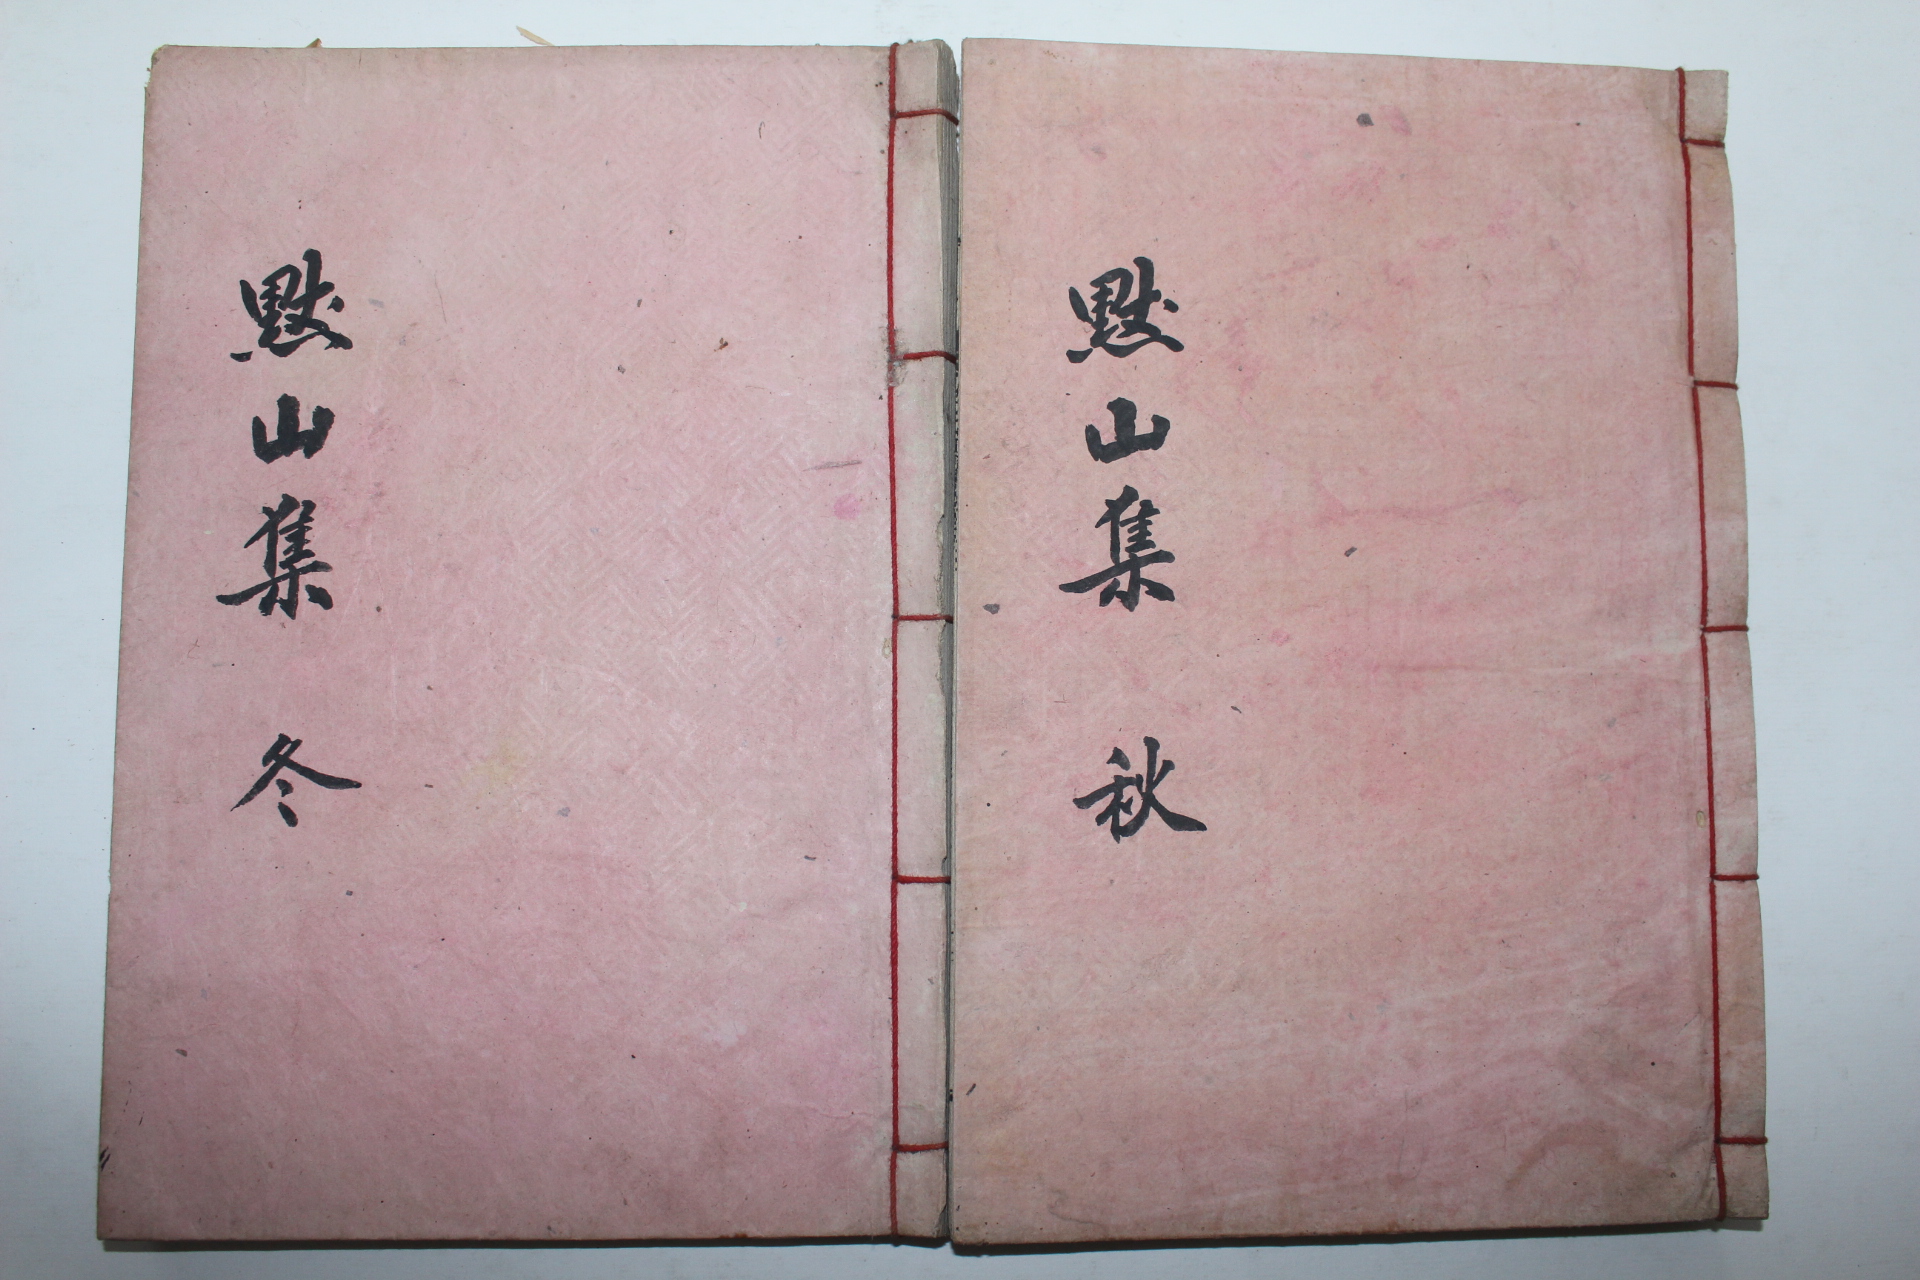 默山集 秋
默山集 冬